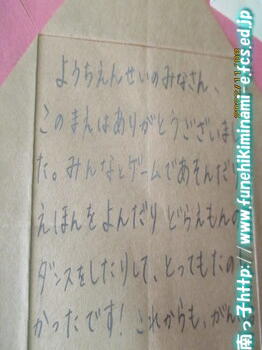 ようちえんせいのみなさん、
このまえはありがとうございまし
た。みんなとゲームであそんだり
えほんをよんだりどらえもんの
ダンスをしたりして、とってもたの
かったです！これからも、がん
南っ子http://www.funehikiminami-e.fcs.ed.jp